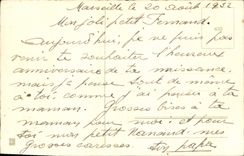 Marseille le 20 août 1932
Mon joli petit Fernand.
Aujourd'hui, je ne puis pas
venir te souhaiter l'heureux
anniversaire de ta naissance
mais je pense tout de même
à toi comme j'ai pensé à ta
maman. Grosses bises à ta
maman pour moi. et pour
toi mon petit Nanaud. mes
grosses caresses Ton papa